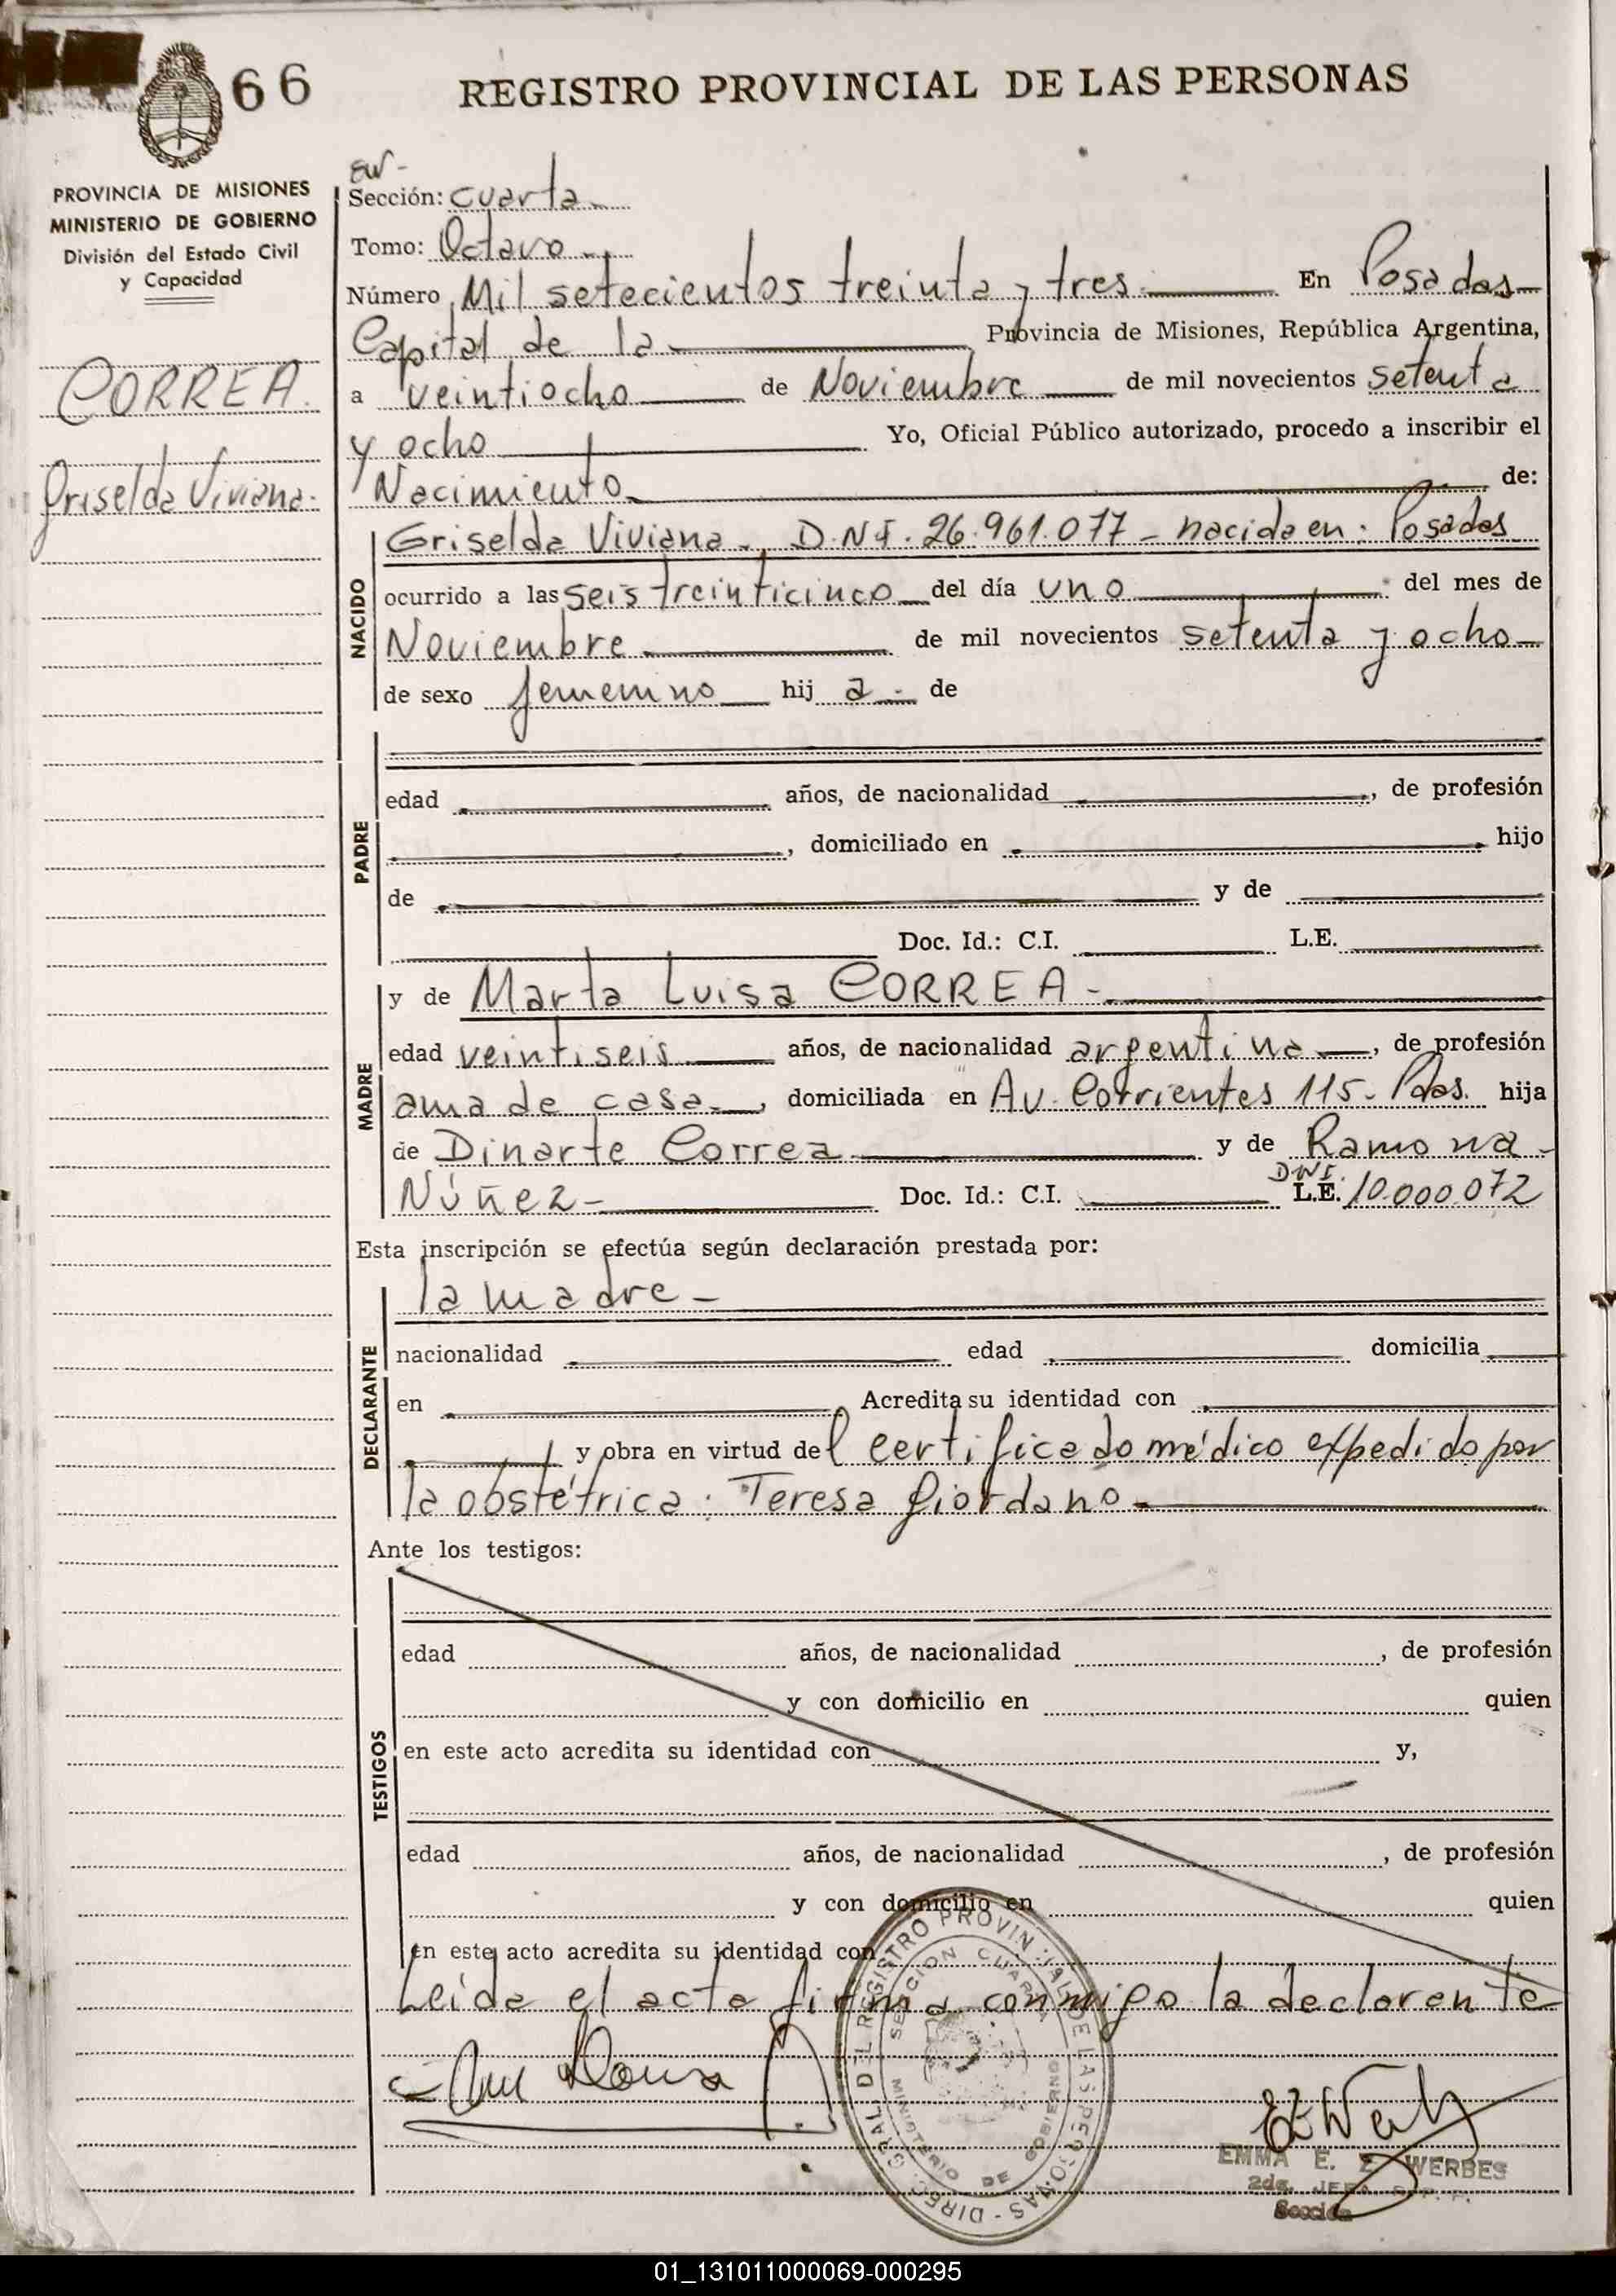 66
REGISTRO PROVINCIAL DE LAS PERSONAS
PROVINCIA DE MISIONES
MINISTERIO DE GOBIERNO
División del Estado Civil
y Capacidad
CORREA.
Griselda Viviana.
Sección: cuarta
Tomo: Octavo
Número Mil setecientos treinta y tres En Posadas
Capital de la Provincia de Misiones, República Argentina,
a veintiocho de Noviembre de mil novecientos setenta
y ocho Yo, Oficial Público autorizado, procedo a inscribir el
Nacimiento de:
NACIDO
Griselda Viviana - D.N.I. 26.961.077 - nacida en: Posadas
ocurrido a las seis treinticinco del día uno del mes de
Noviembre de mil novecientos setenta y ocho
de sexo femenino hija de
PADRE
edad años, de nacionalidad , de profesión
, domiciliado en hijo
de y de
Doc. Id.: C.I. L.E.
MADRE
y de Marta Luisa CORREA -
edad veintiseis años, de nacionalidad argentina , de profesión
ama de casa , domiciliada en Av. Corrientes 115 - Pdas. hija
de Dinarte Correa y de Ramona
Núñez - Doc. Id.: C.I. DNI. L.E. 10.000.072
Esta inscripción se efectúa según declaración prestada por:
DECLARANTE
la madre -
nacionalidad edad domicilia
en Acredita su identidad con
y obra en virtud del certificado médico expedido por
la obstétrica: Teresa Giordano
Ante los testigos:
TESTIGOS
edad años, de nacionalidad , de profesión
y con domicilio en quien
en este acto acredita su identidad con y,
edad años, de nacionalidad , de profesión
y con domicilio en quien
en este acto acredita su identidad con
Leída el acta firma conmigo la declarante
DIREC. GRAL. DEL REGISTRO PROVINCIAL DE LAS PERSONAS
SECCION CUARTA
MINISTERIO DE GOBIERNO
EMMA E. WERBES
2da. JEFA
Sección
01_131011000069-000295